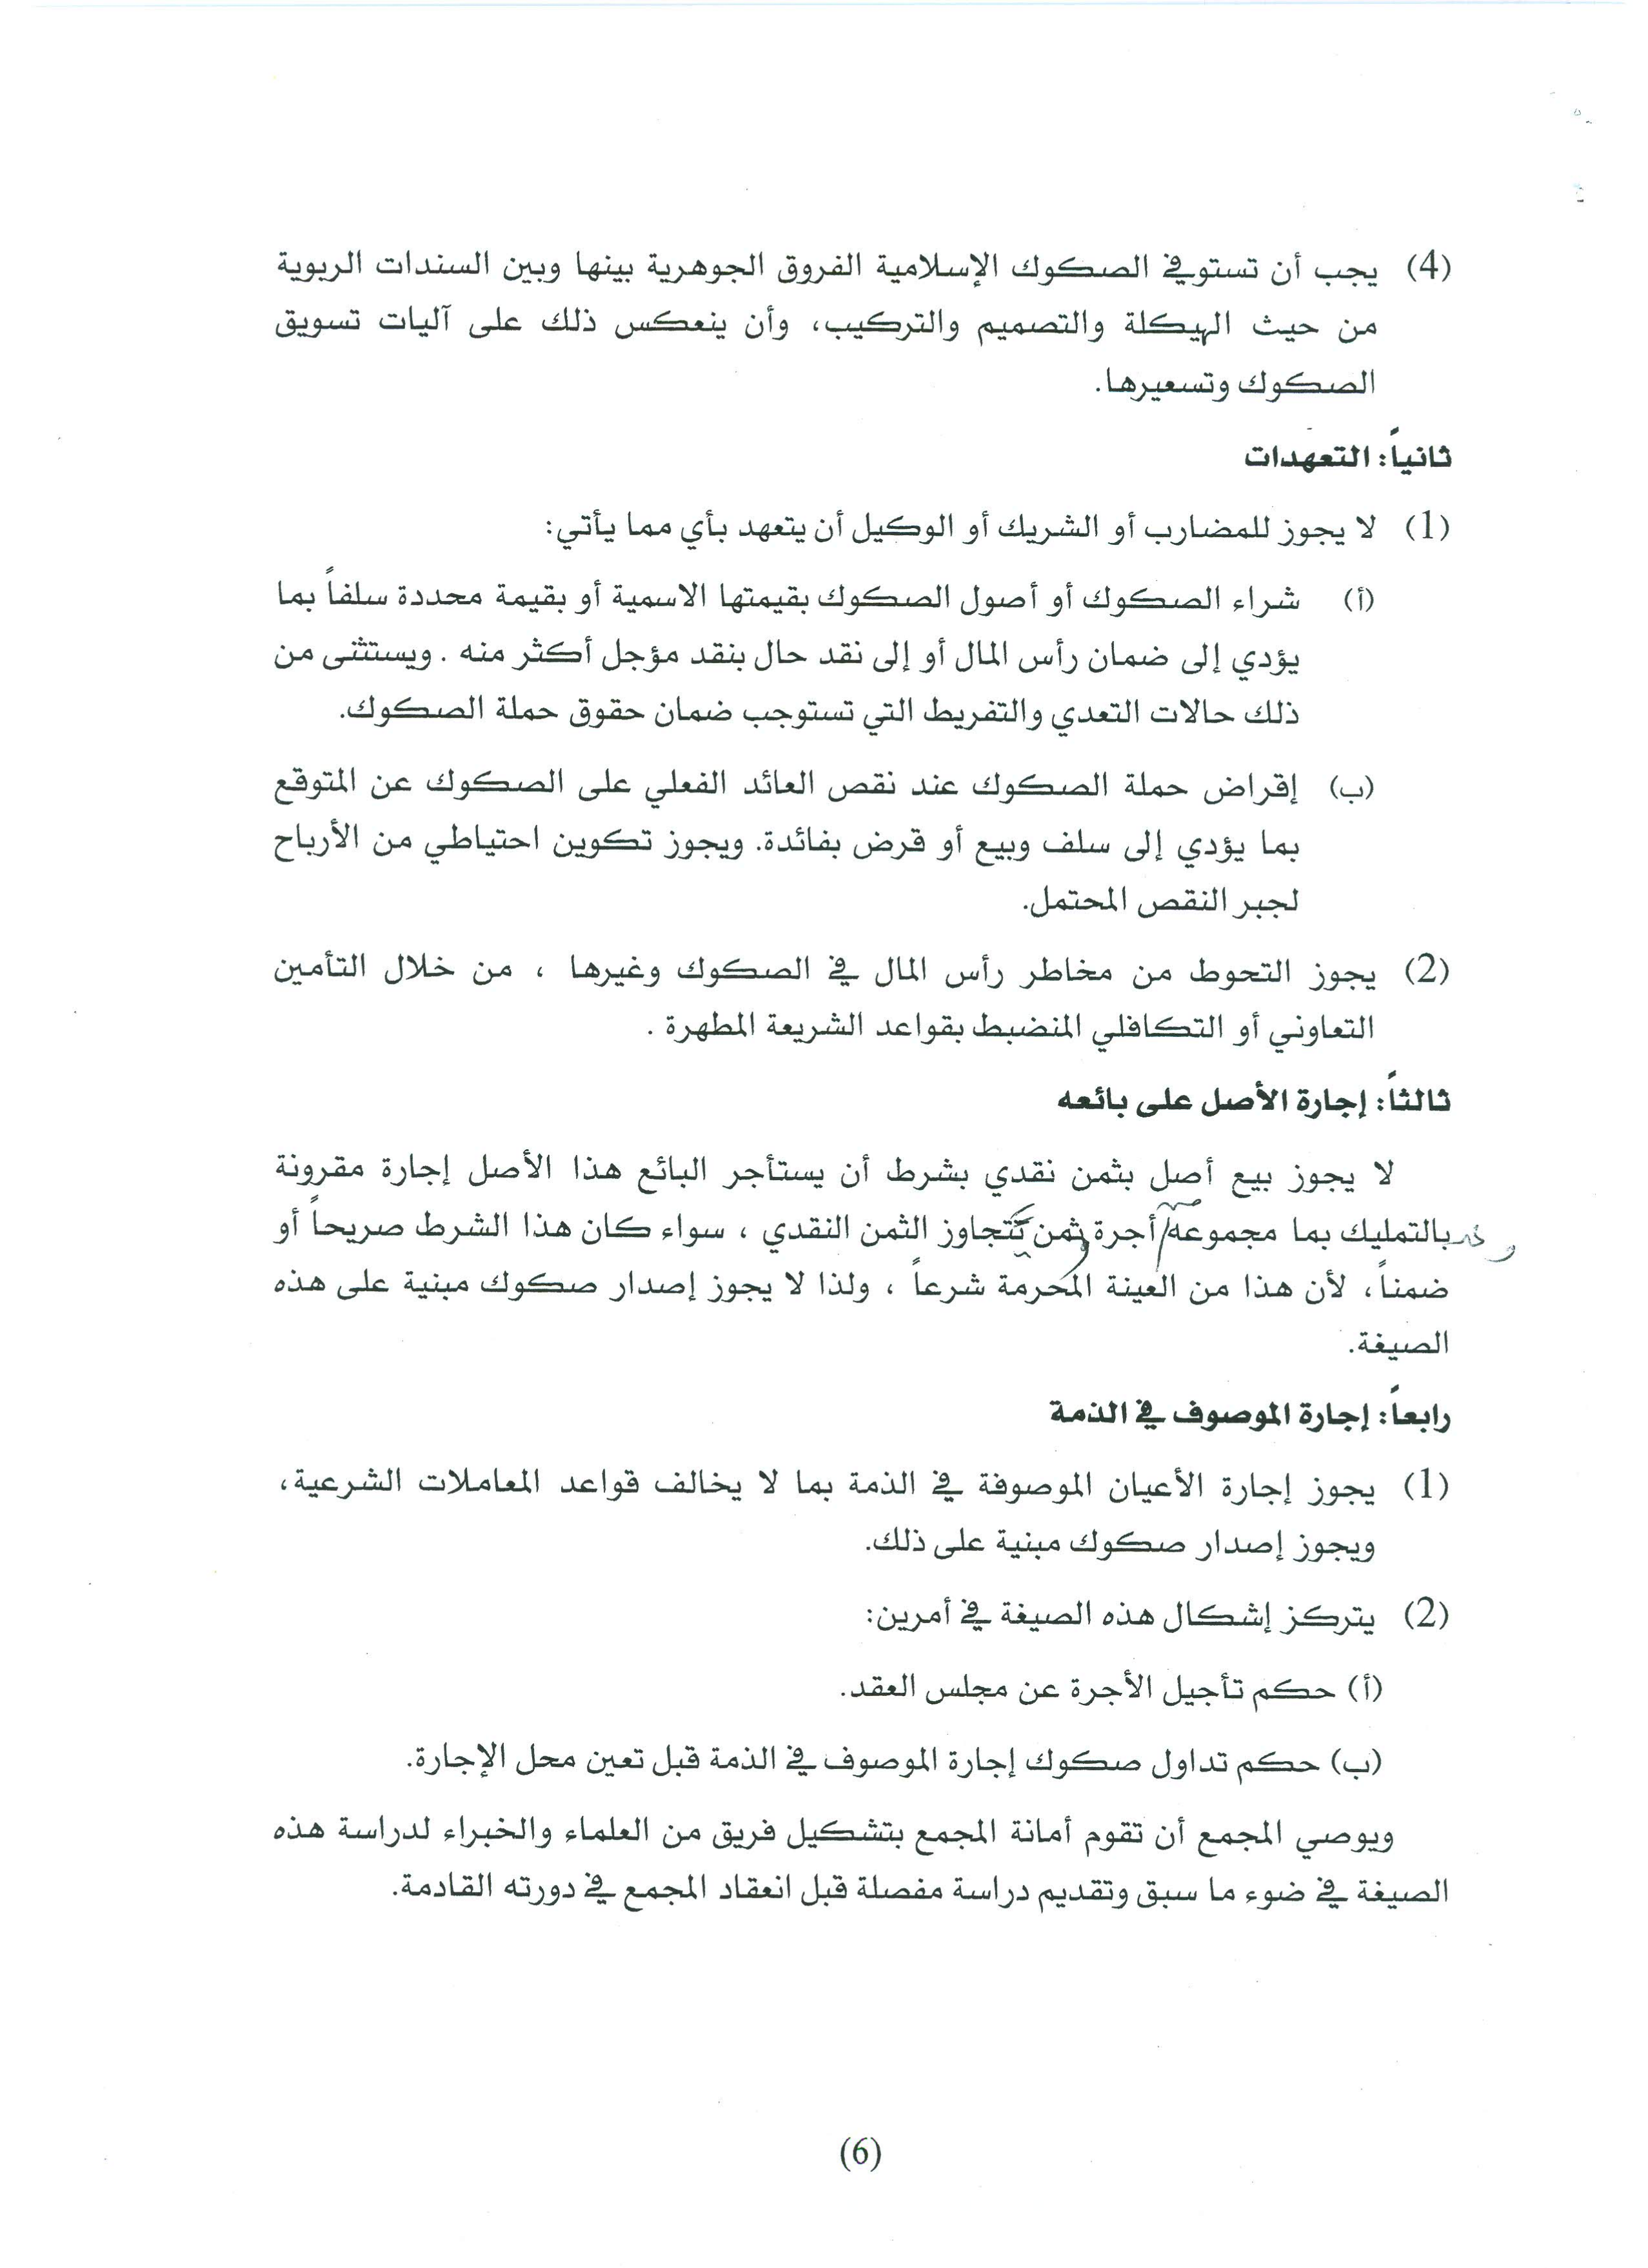 (4) يجب أن تستوفي الصكوك الإسلامية الفروق الجوهرية بينها وبين السندات الربوية
من حيث الهيكلة والتصميم والتركيب، وأن ينعكس ذلك على آليات تسويق
الصكوك وتسعيرها.
ثانياً: التعهدات
(1) لا يجوز للمضارب أو الشريك أو الوكيل أن يتعهد بأي مما يأتي:
(أ) شراء الصكوك أو أصول الصكوك بقيمتها الاسمية أو بقيمة محددة سلفاً بما
يؤدي إلى ضمان رأس المال أو إلى نقد حال بنقد مؤجل أكثر منه . ويستثنى من
ذلك حالات التعدي والتفريط التي تستوجب ضمان حقوق حملة الصكوك.
(ب) إقراض حملة الصكوك عند نقص العائد الفعلي على الصكوك عن المتوقع
بما يؤدي إلى سلف وبيع أو قرض بفائدة. ويجوز تكوين احتياطي من الأرباح
لجبر النقص المحتمل.
(2) يجوز التحوط من مخاطر رأس المال في الصكوك وغيرها ، من خلال التأمين
التعاوني أو التكافلي المنضبط بقواعد الشريعة المطهرة .
ثالثاً: إجارة الأصل على بائعه
لا يجوز بيع أصل بثمن نقدي بشرط أن يستأجر البائع هذا الأصل إجارة مقرونة
بالتمليك بما مجموعه أجرة وثمن تتجاوز الثمن النقدي ، سواء كان هذا الشرط صريحاً أو
ضمناً، لأن هذا من العينة المحرمة شرعاً ، ولذا لا يجوز إصدار صكوك مبنية على هذه
الصيغة.
رابعاً: إجارة الموصوف في الذمة
(1) يجوز إجارة الأعيان الموصوفة في الذمة بما لا يخالف قواعد المعاملات الشرعية،
ويجوز إصدار صكوك مبنية على ذلك.
(2) يتركز إشكال هذه الصيغة في أمرين:
(أ) حكم تأجيل الأجرة عن مجلس العقد.
(ب) حكم تداول صكوك إجارة الموصوف في الذمة قبل تعين محل الإجارة.
ويوصي المجمع أن تقوم أمانة المجمع بتشكيل فريق من العلماء والخبراء لدراسة هذه
الصيغة في ضوء ما سبق وتقديم دراسة مفصلة قبل انعقاد المجمع في دورته القادمة.
(6)